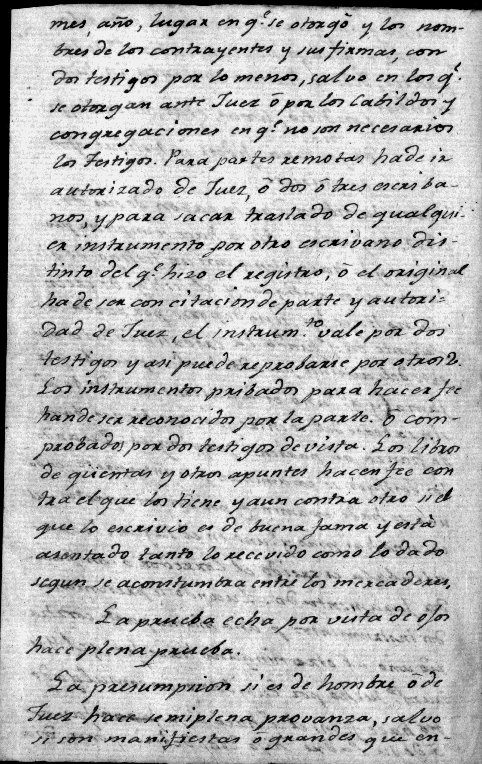 mes, año, lugar en q.e se otorgò y los nom-
bres de los contrayentes y sus firmas, con
dos testigos por lo menos, salvo en los q.e
se otorgan ante Juez ô por los Cabildos y
congregaciones en q.e no son necesarios
los Testigos. Para partes remotas hade ir
autorizado de Juez, ô dos ô tres escriba-
nos, y para sacar traslado de qualqui-
er instrumento por otro escrivano dis-
tinto del q.e hizo el registro, ô el original
hade ser con citacion de parte y autori-
dad de Juez, el instrum.to vale por dos
testigos y asi puede reprobarse por otros 2.
Los instrumentos pribados para hacer fee
hande ser reconocidos por la parte. ô com-
probados por dos testigos de vista. Los libros
de qüentas y otros apuntes hacen fee con
tra el que los tiene y aun contra otro si el
que lo escrivio es de buena fama y està
asentado tanto lo recevido como lo dado
segun se acostumbra entre los mercaderes.
La prueba echa por vista de ojos
hace plena prueba.
La presumpsion si es de hombre ô de
Juez hace semiplena provanza, salvo
si son manifiestas ô grandes que en-